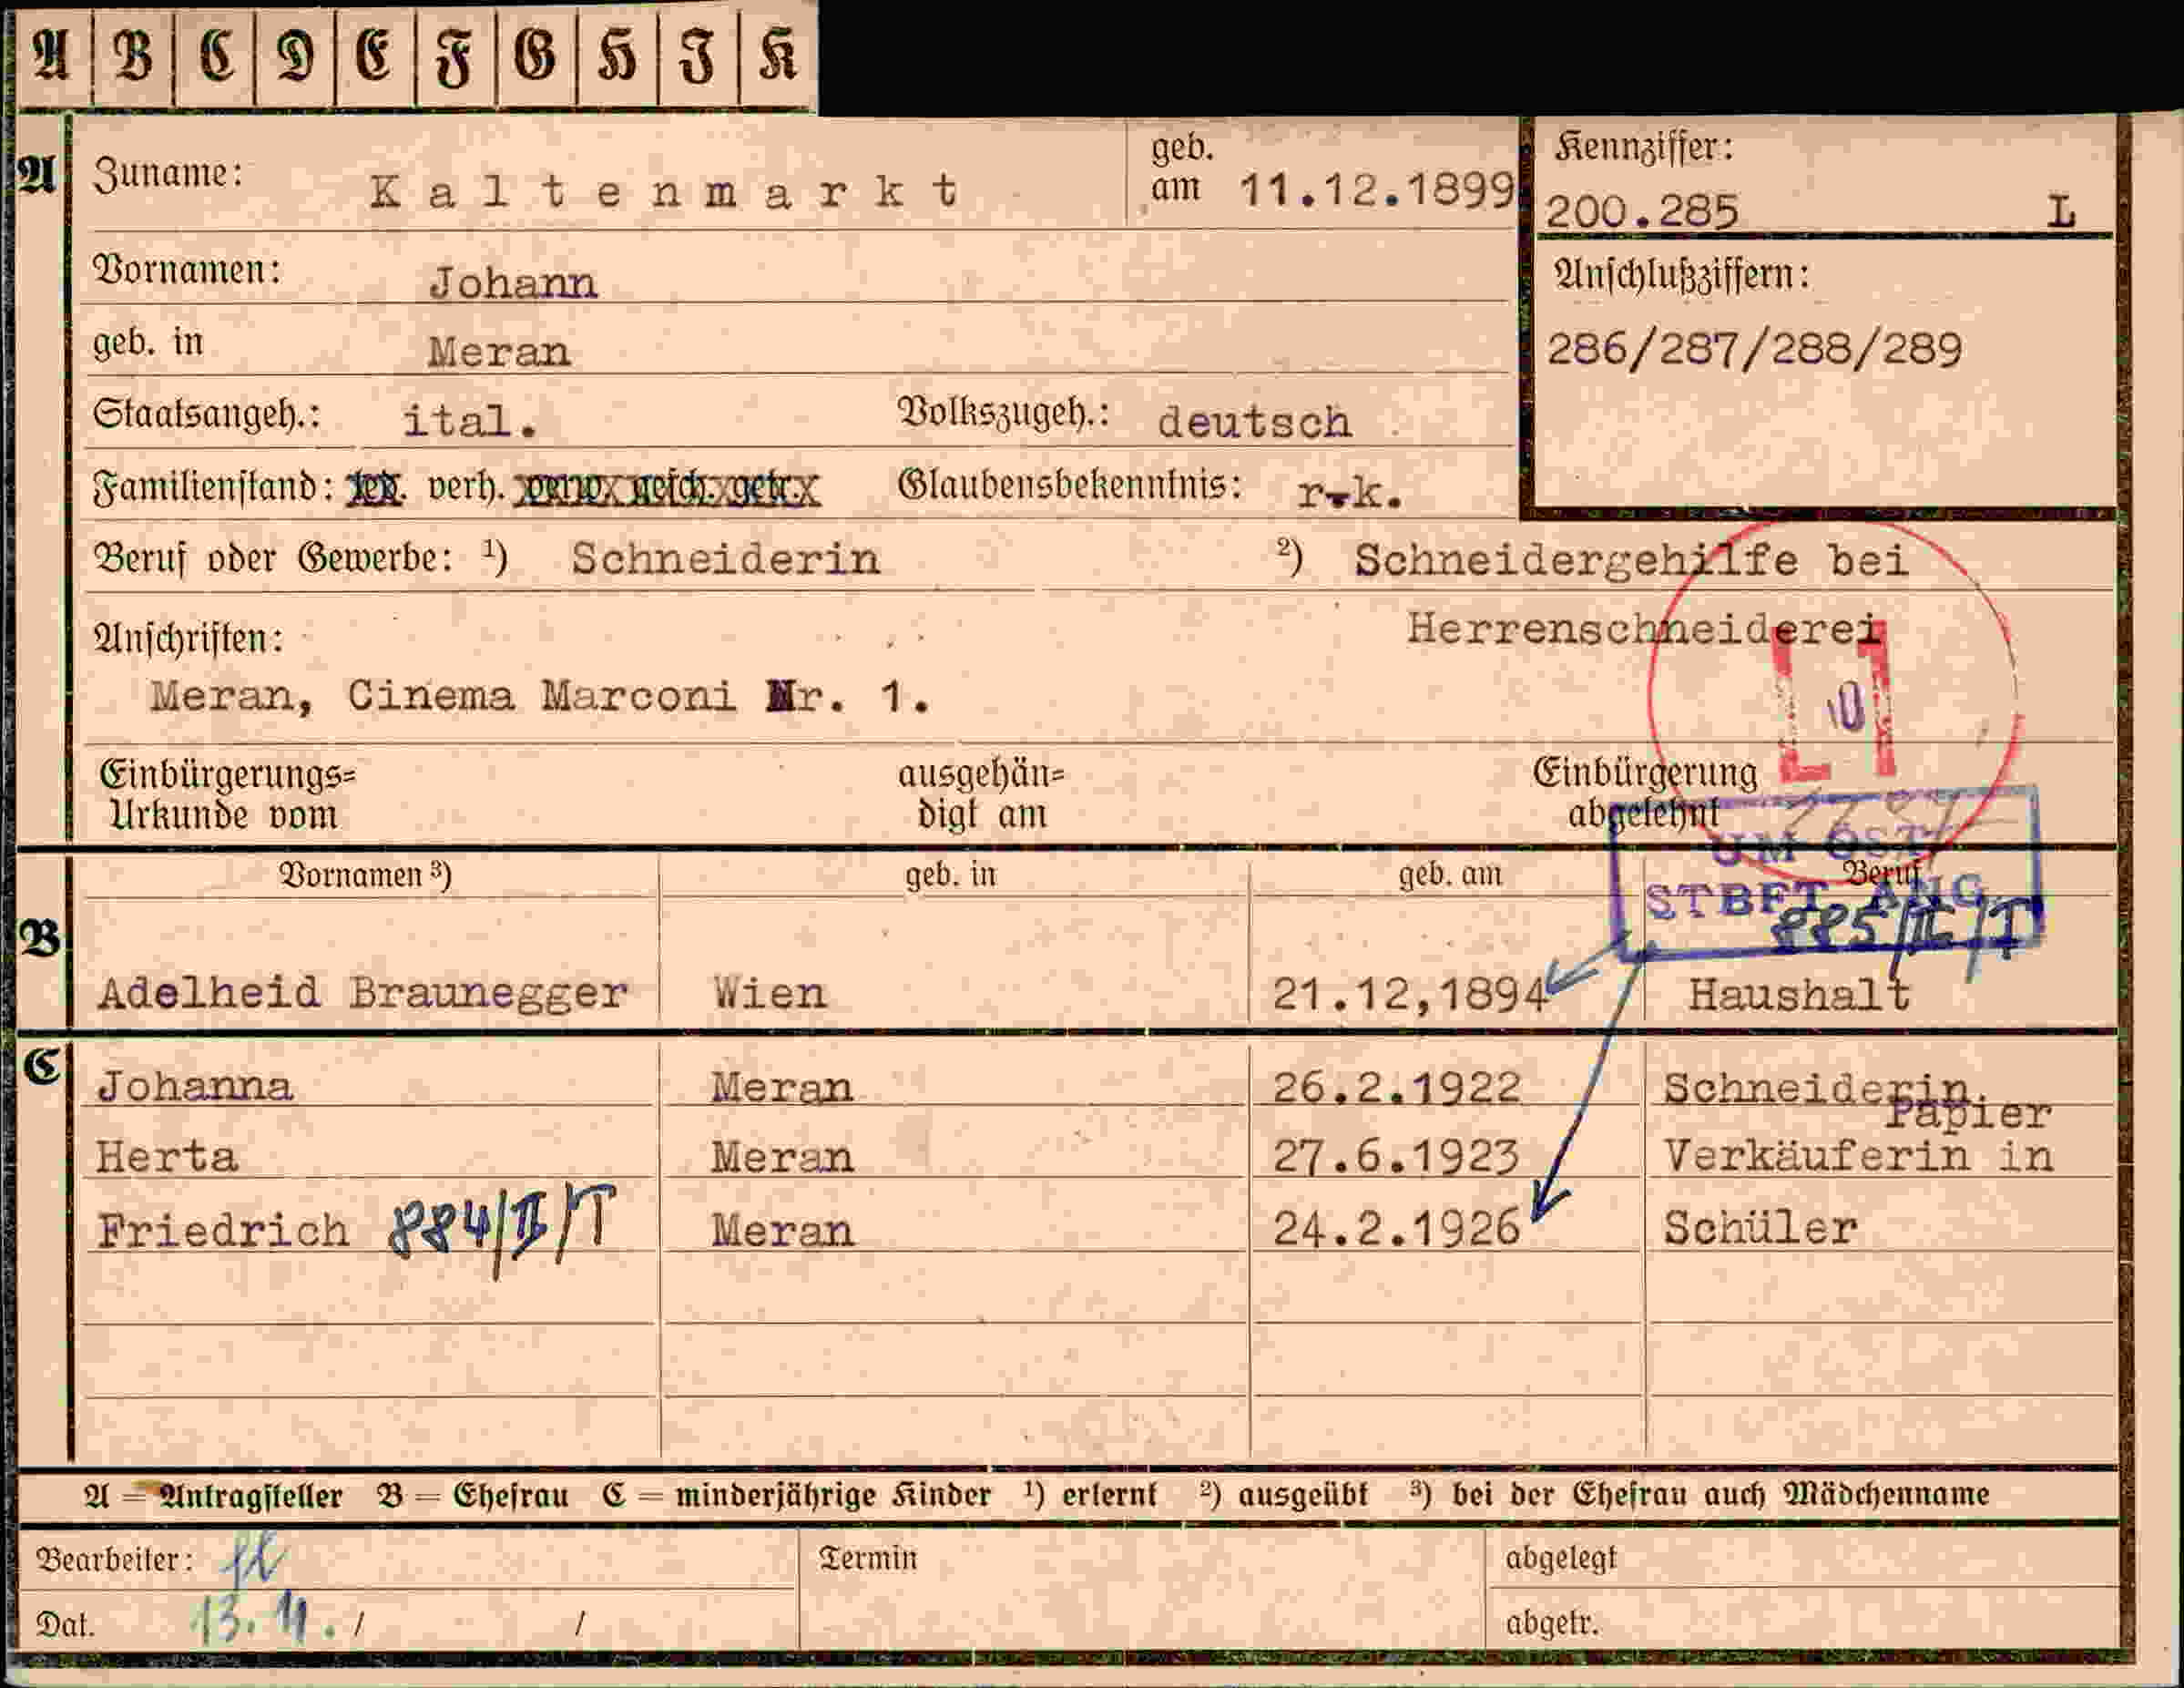 A B C D E F G H I K
A Zuname: Kaltenmarkt geb. am 11.12.1899
Kennziffer:
200.285 L
Vornamen: Johann
Anschlußziffern:
286/287/288/289
geb. in Meran
Staatsangeh.: ital. Volkszugeh.: deutsch
Familienstand: led. verh. verw. gesch. getr. Glaubensbekenntnis: r.k.
Beruf oder Gewerbe: ¹) Schneiderin ²) Schneidergehilfe bei
Herrenschneiderei
Anschriften:
Meran, Cinema Marconi Nr. 1.
Einbürgerungs=
Urkunde vom
ausgehän=
digt am
Einbürgerung
abgelehnt
UM ÖST
STBFT. ANG
885/II/T
Vornamen ³) geb. in geb. am Beruf
B Adelheid Braunegger Wien 21.12,1894 Haushalt
C Johanna Meran 26.2.1922 Schneiderin.
Papier
Herta Meran 27.6.1923 Verkäuferin in
Friedrich 884/II/T Meran 24.2.1926 Schüler
A = Antragsteller B = Ehefrau C = minderjährige Kinder ¹) erlernt ²) ausgeübt ³) bei der Ehefrau auch Mädchenname
Bearbeiter: Termin abgelegt
Dat. 13.11. / / abgetr.